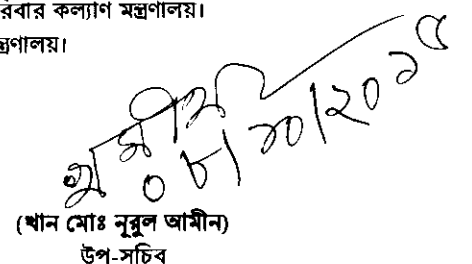 রবার কল্যাণ মন্ত্রণালয়।
ন্ত্রণালয়।
০৮/১০/২০১৫
(খান মোঃ নূরুল আমীন)
উপ-সচিব